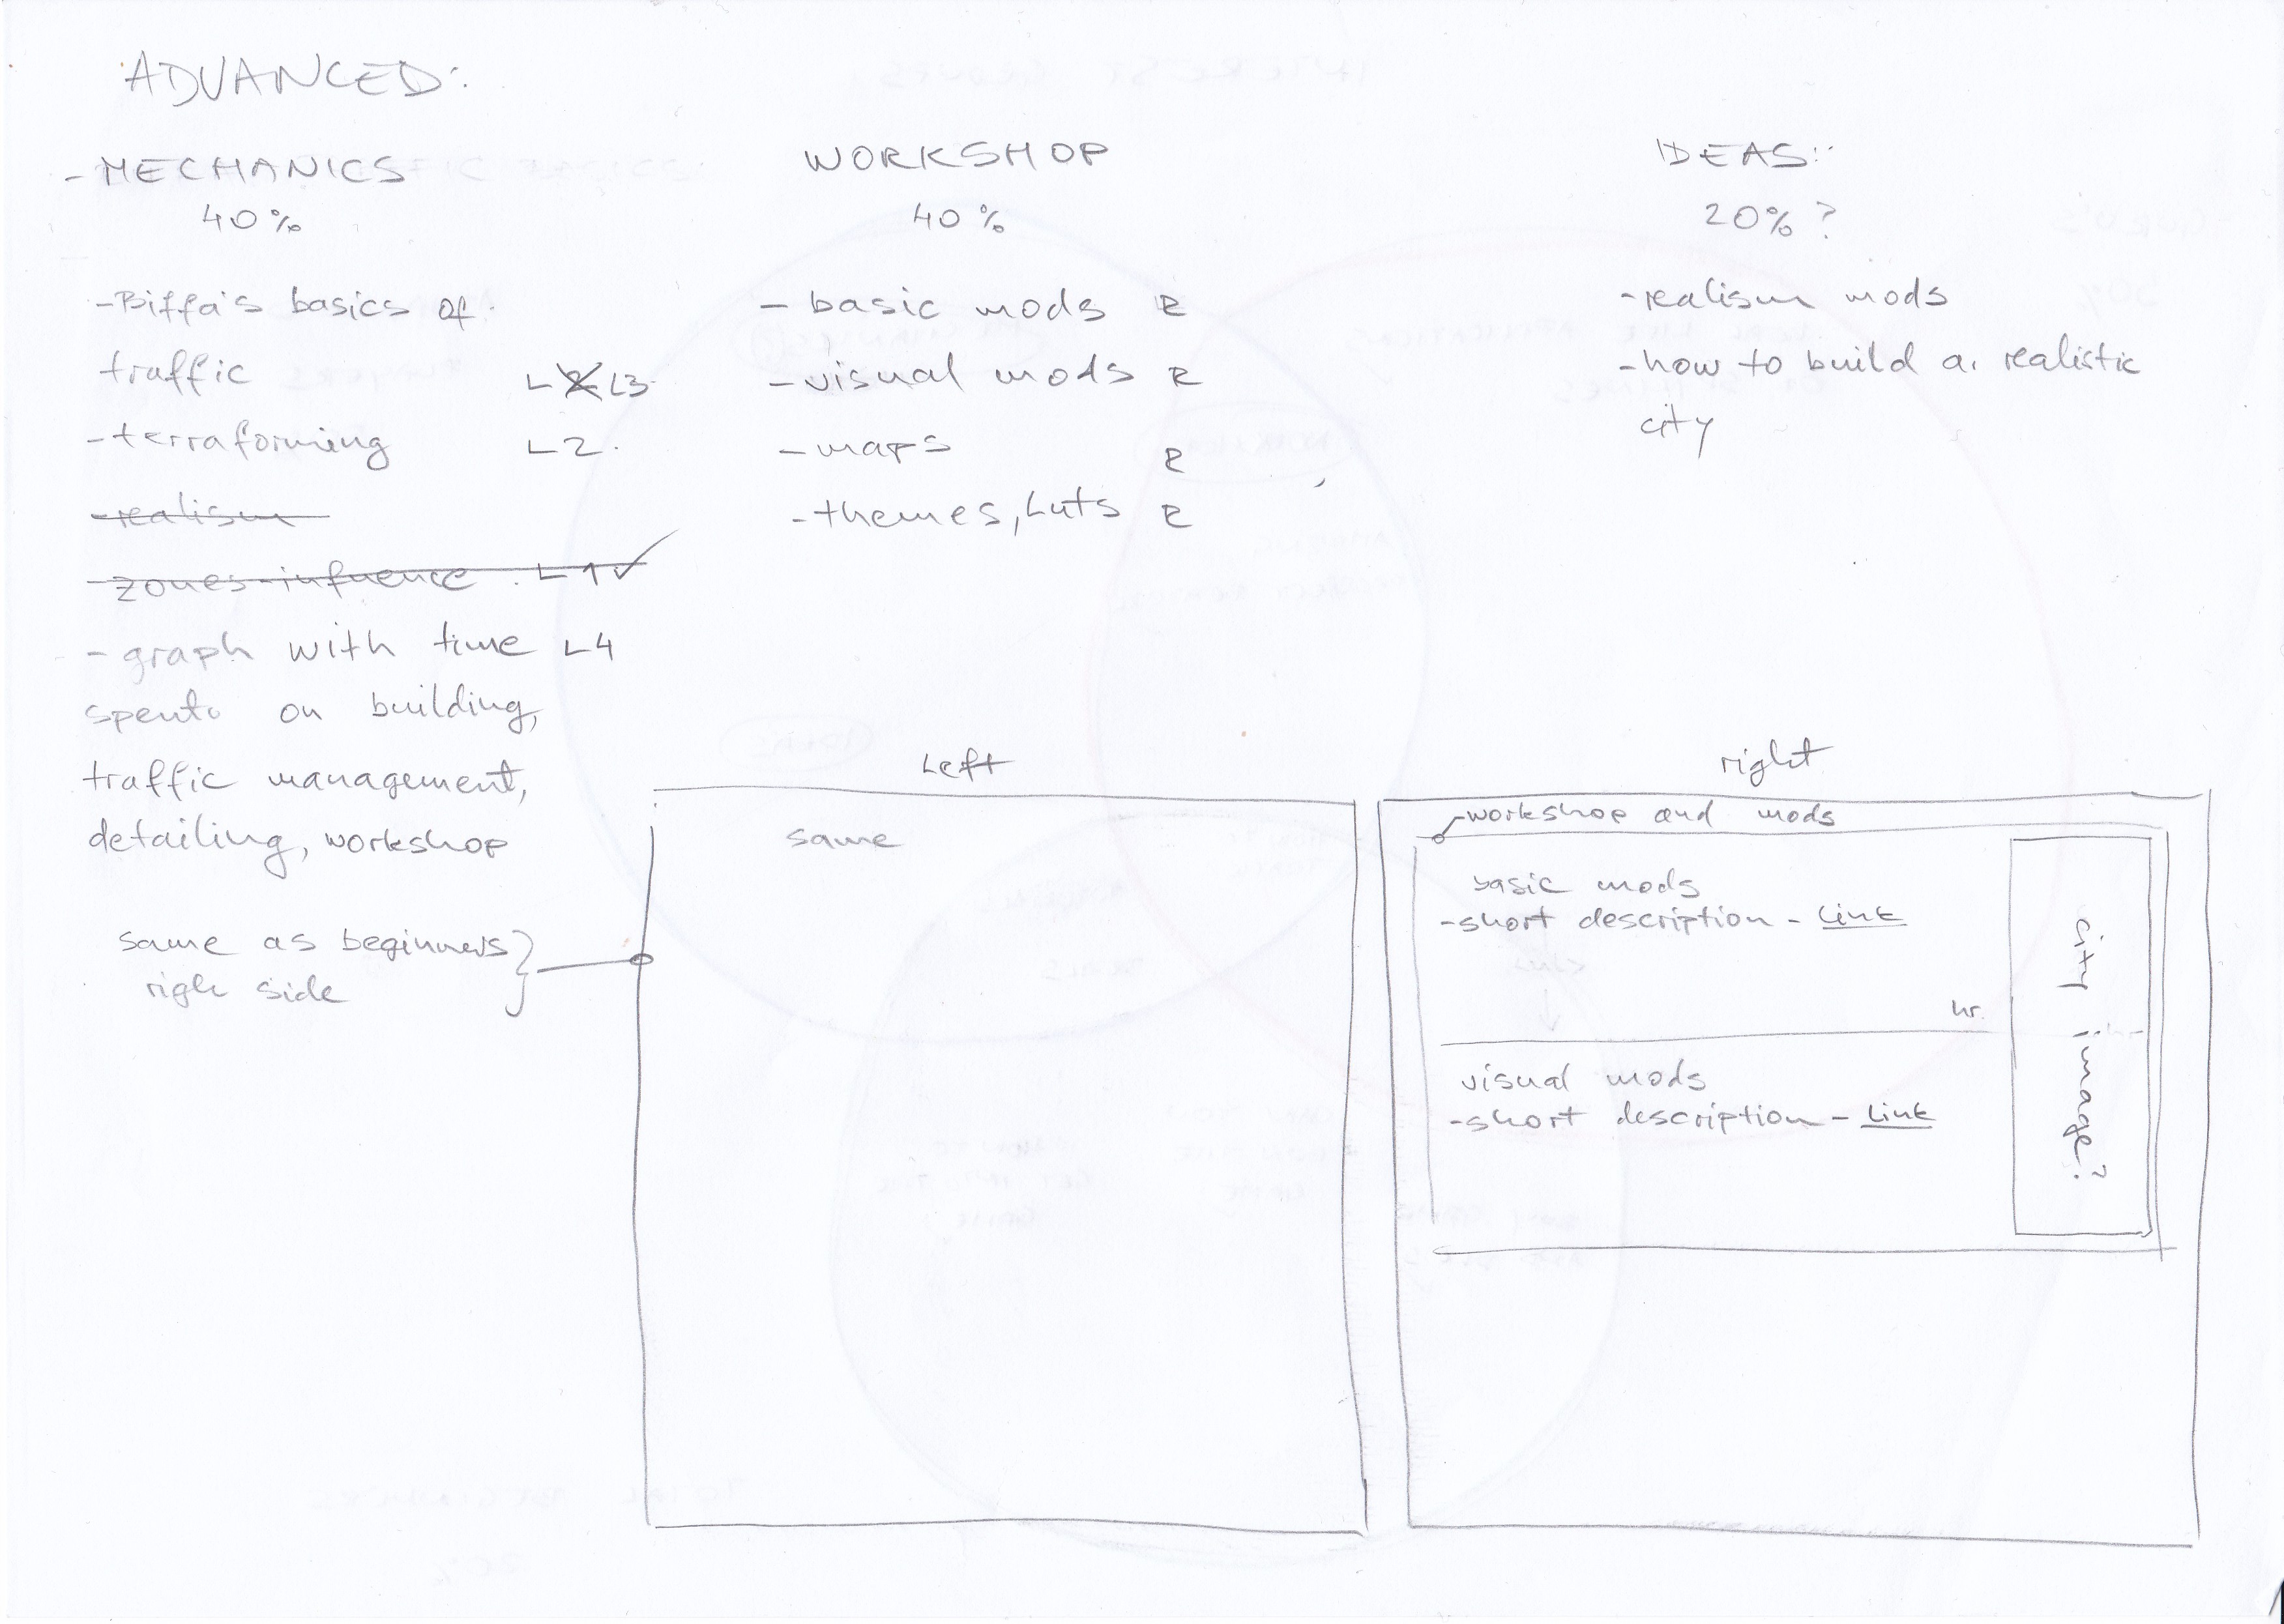 ADVANCED:
- MECHANICS
40%
- Biffa's basics of
traffic L2 L3
- terraforming L2
- realism
- zones infuence L1 ✓
- graph with time L4
spent on building,
traffic management,
detailing, workshop
same as beginners }
righ side
WORKSHOP
40%
- basic mods R
- visual mods R
- maps R
- themes, Luts R
IDEAS:
20% ?
- realism mods
- how to build a realistic
city
Left
same
right
workshop and mods
basic mods
- short description - Link
hr.
visual mods
- short description - Link
city image?